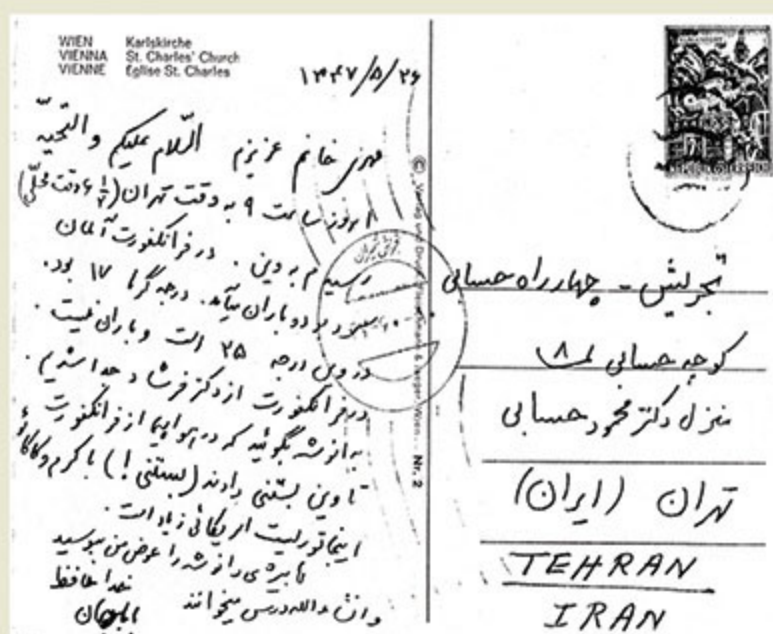 WIEN Karlskirche
VIENNA St. Charles' Church
VIENNE Église St. Charles
۱۳۴۷/۵/۲۶
خانم عزیزم السّلام علیکم والتحیّه
امروز ساعت ۹ به وقت تهران (محلّی)
رسیدم به وین. در فرانکفورت آلمان
سرد بود و باران میآمد. درجه گرما ۱۷ بود.
در وین درجه ۲۵ است و باران نیست.
در فرانکفورت از دکتر فرشاد جدا شدیم.
به انوشه بگوئید که در هواپیما از فرانکفورت
تا وین بستنی دادند (بستنی!) با کرم و کاکائو
اینجا توریست امریکائی زیاد است.
و انوشه را عوض من ببوسید
وانشاءالله درس میخوانند خدا حافظ
تجریش - چهارراه حسابی
کوچه حسابی ۸
منزل دکتر محمود حسابی
تهران (ایران)
TEHRAN
IRAN
Nr. 2